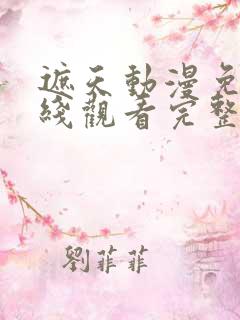 遮天動漫免
綫觀看完整
劉菲菲